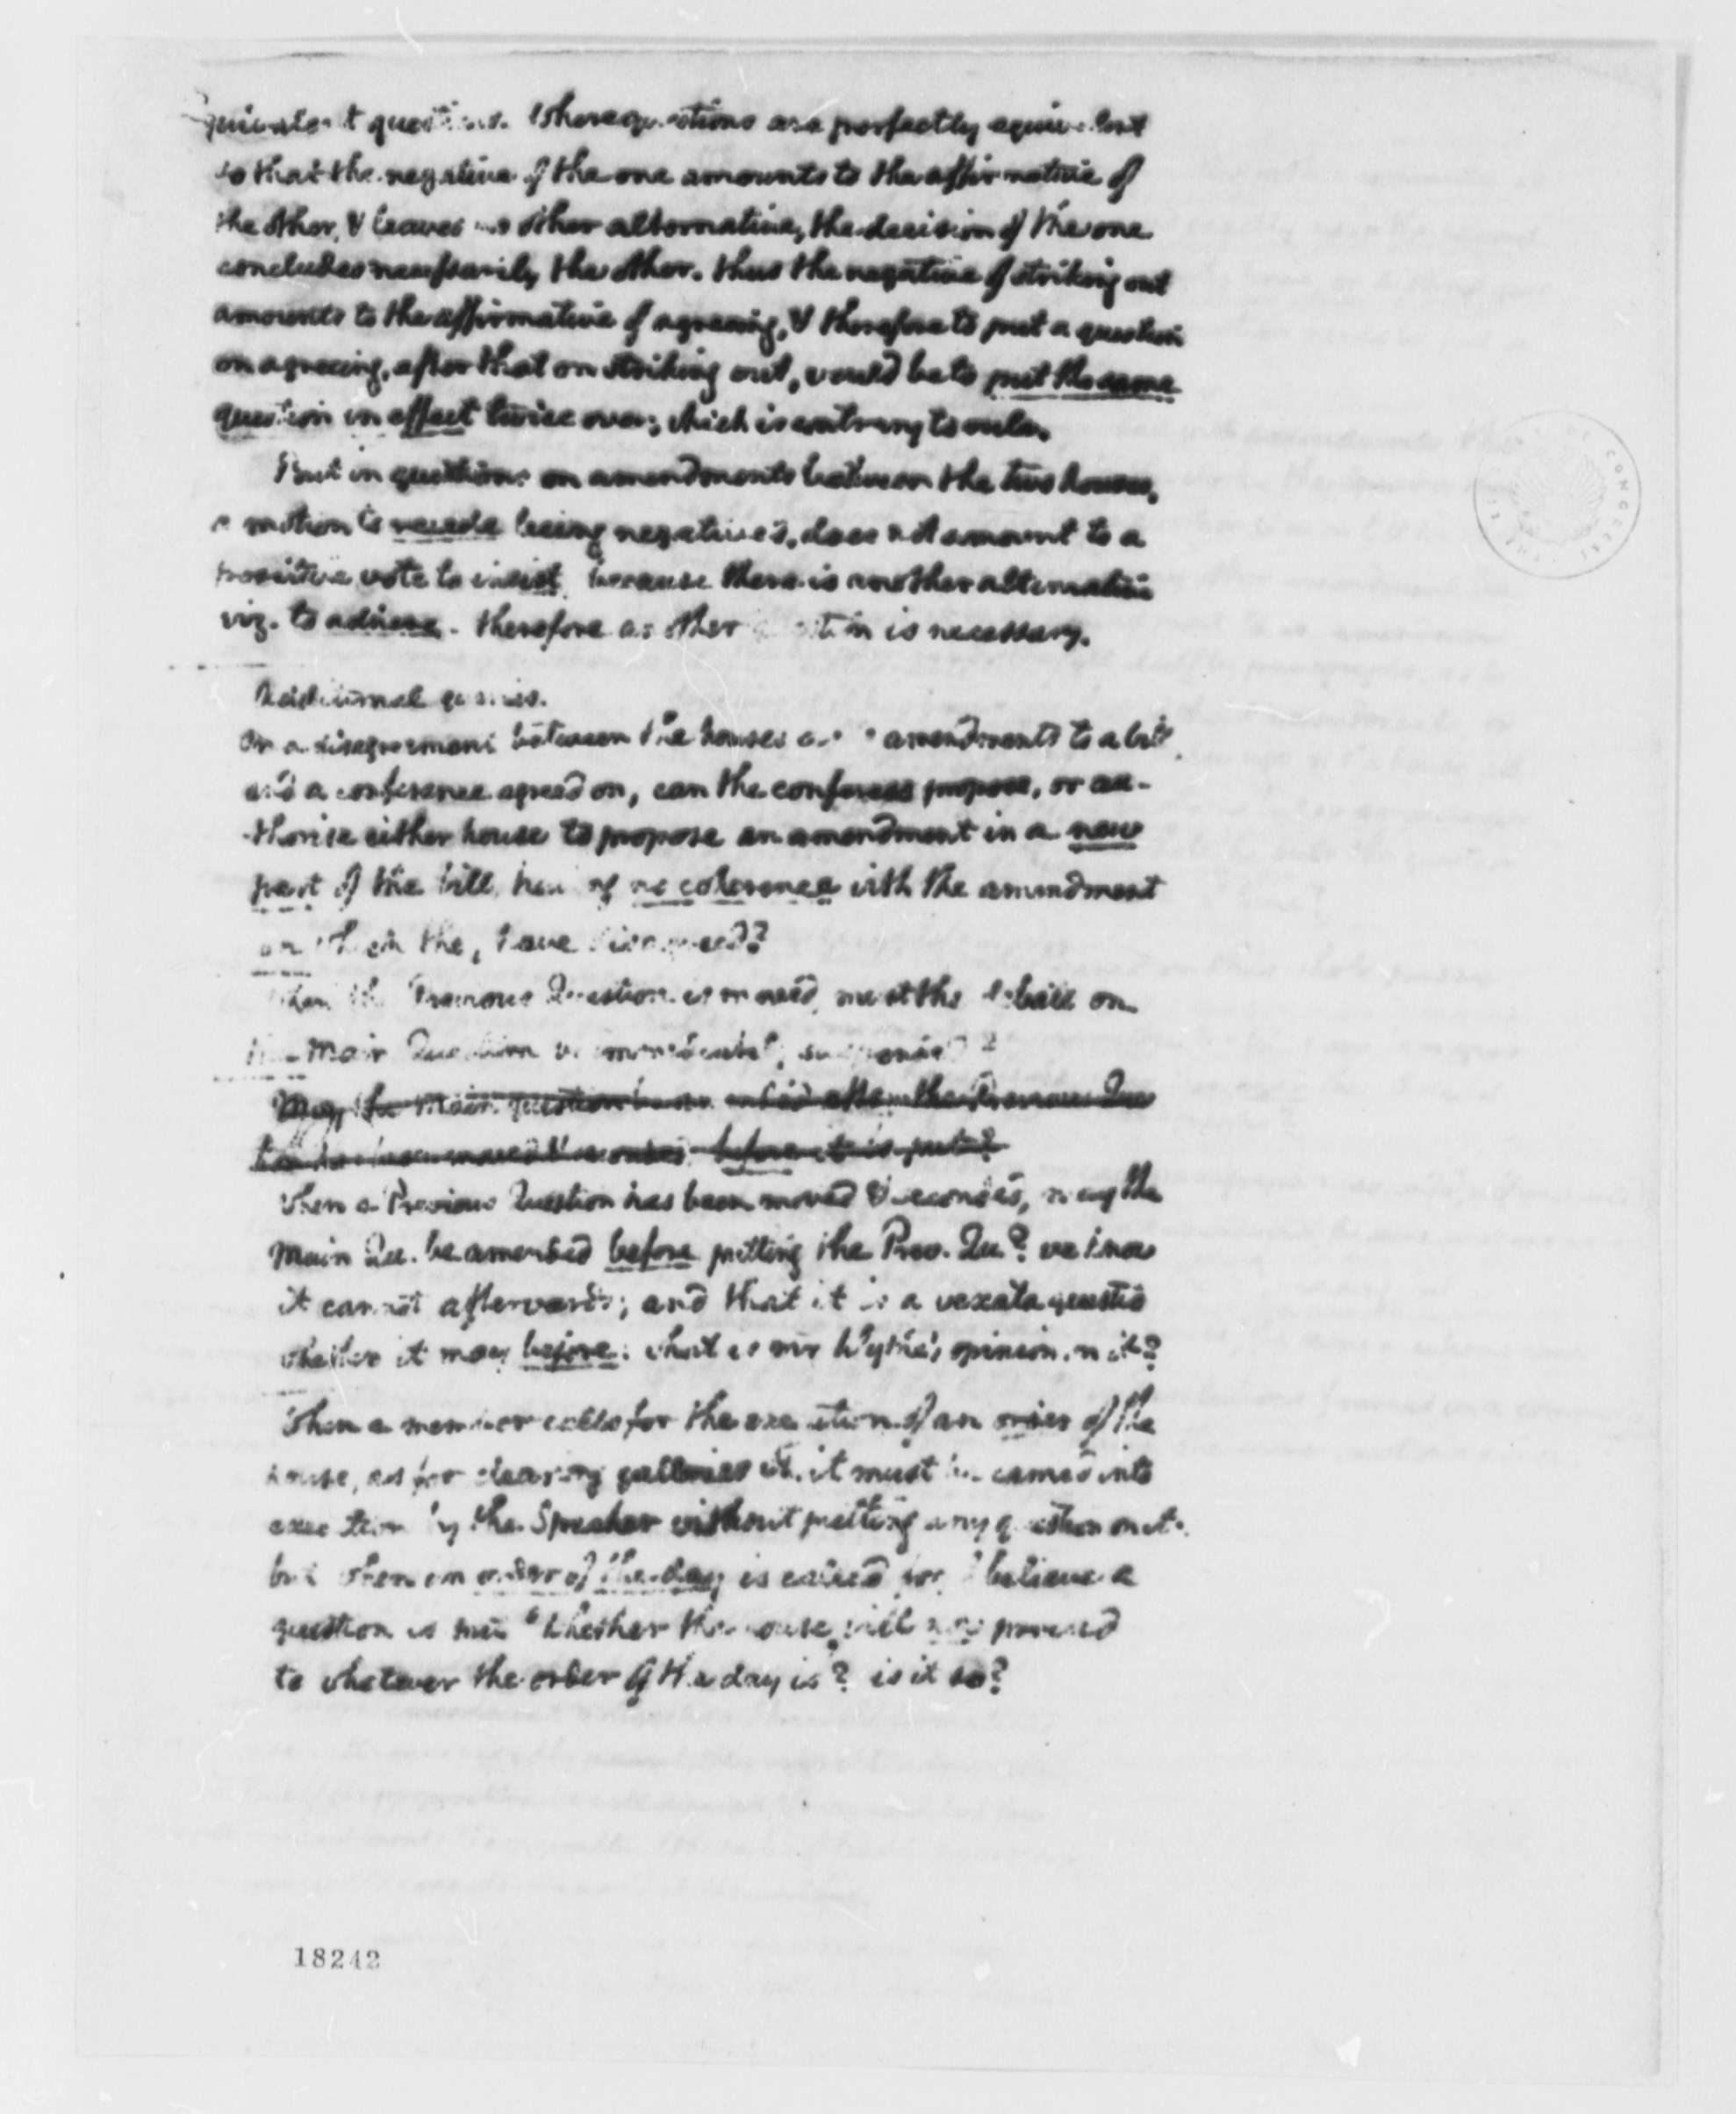 questions. where questions are perfectly equivalent
so that the negative of the one amounts to the affirmative of
the other, & leaves no other alternative, the decision of the one
concludes necessarily the other. thus the negative of striking out
amounts to the affirmative of agreeing, & therefore to put a question
on agreeing, after that on striking out, would be to put the same
question in effect twice over; which is contrary to rule.
But in questions on amendments between the two houses,
a motion to recede being negatived, does not amount to a
positive vote to insist, because there is another alternative
viz. to adhere. therefore another question is necessary.
Additional queries.
On a disagreement between the houses amendments to a bill
and a conference agreed on, can the conferees propose, or au-
thorise either house to propose an amendment in a new
part of the bill, having no coherence with the amendment
on which they have disagreed?
When the Previous Question is moved, must the debate on
the Main Question be suspended?
May the main question be amended after the Previous Ques
tion has been moved & seconded before it is put?
When a Previous Question has been moved & seconded, may the
Main Qu. be amended before putting the Prev. Qu.? we know
it cannot afterwards; and that it is a vexata questio
whether it may before: what is mr Wythe's opinion on it?
When a member calls for the execution of an order of the
house, as for clearing galleries &c. it must be carried into
execution by the Speaker without putting any question on it.
but when an order of the day is called for, I believe a
question is put "whether the house will now proceed
to whatever the order of the day is? is it so?
18242